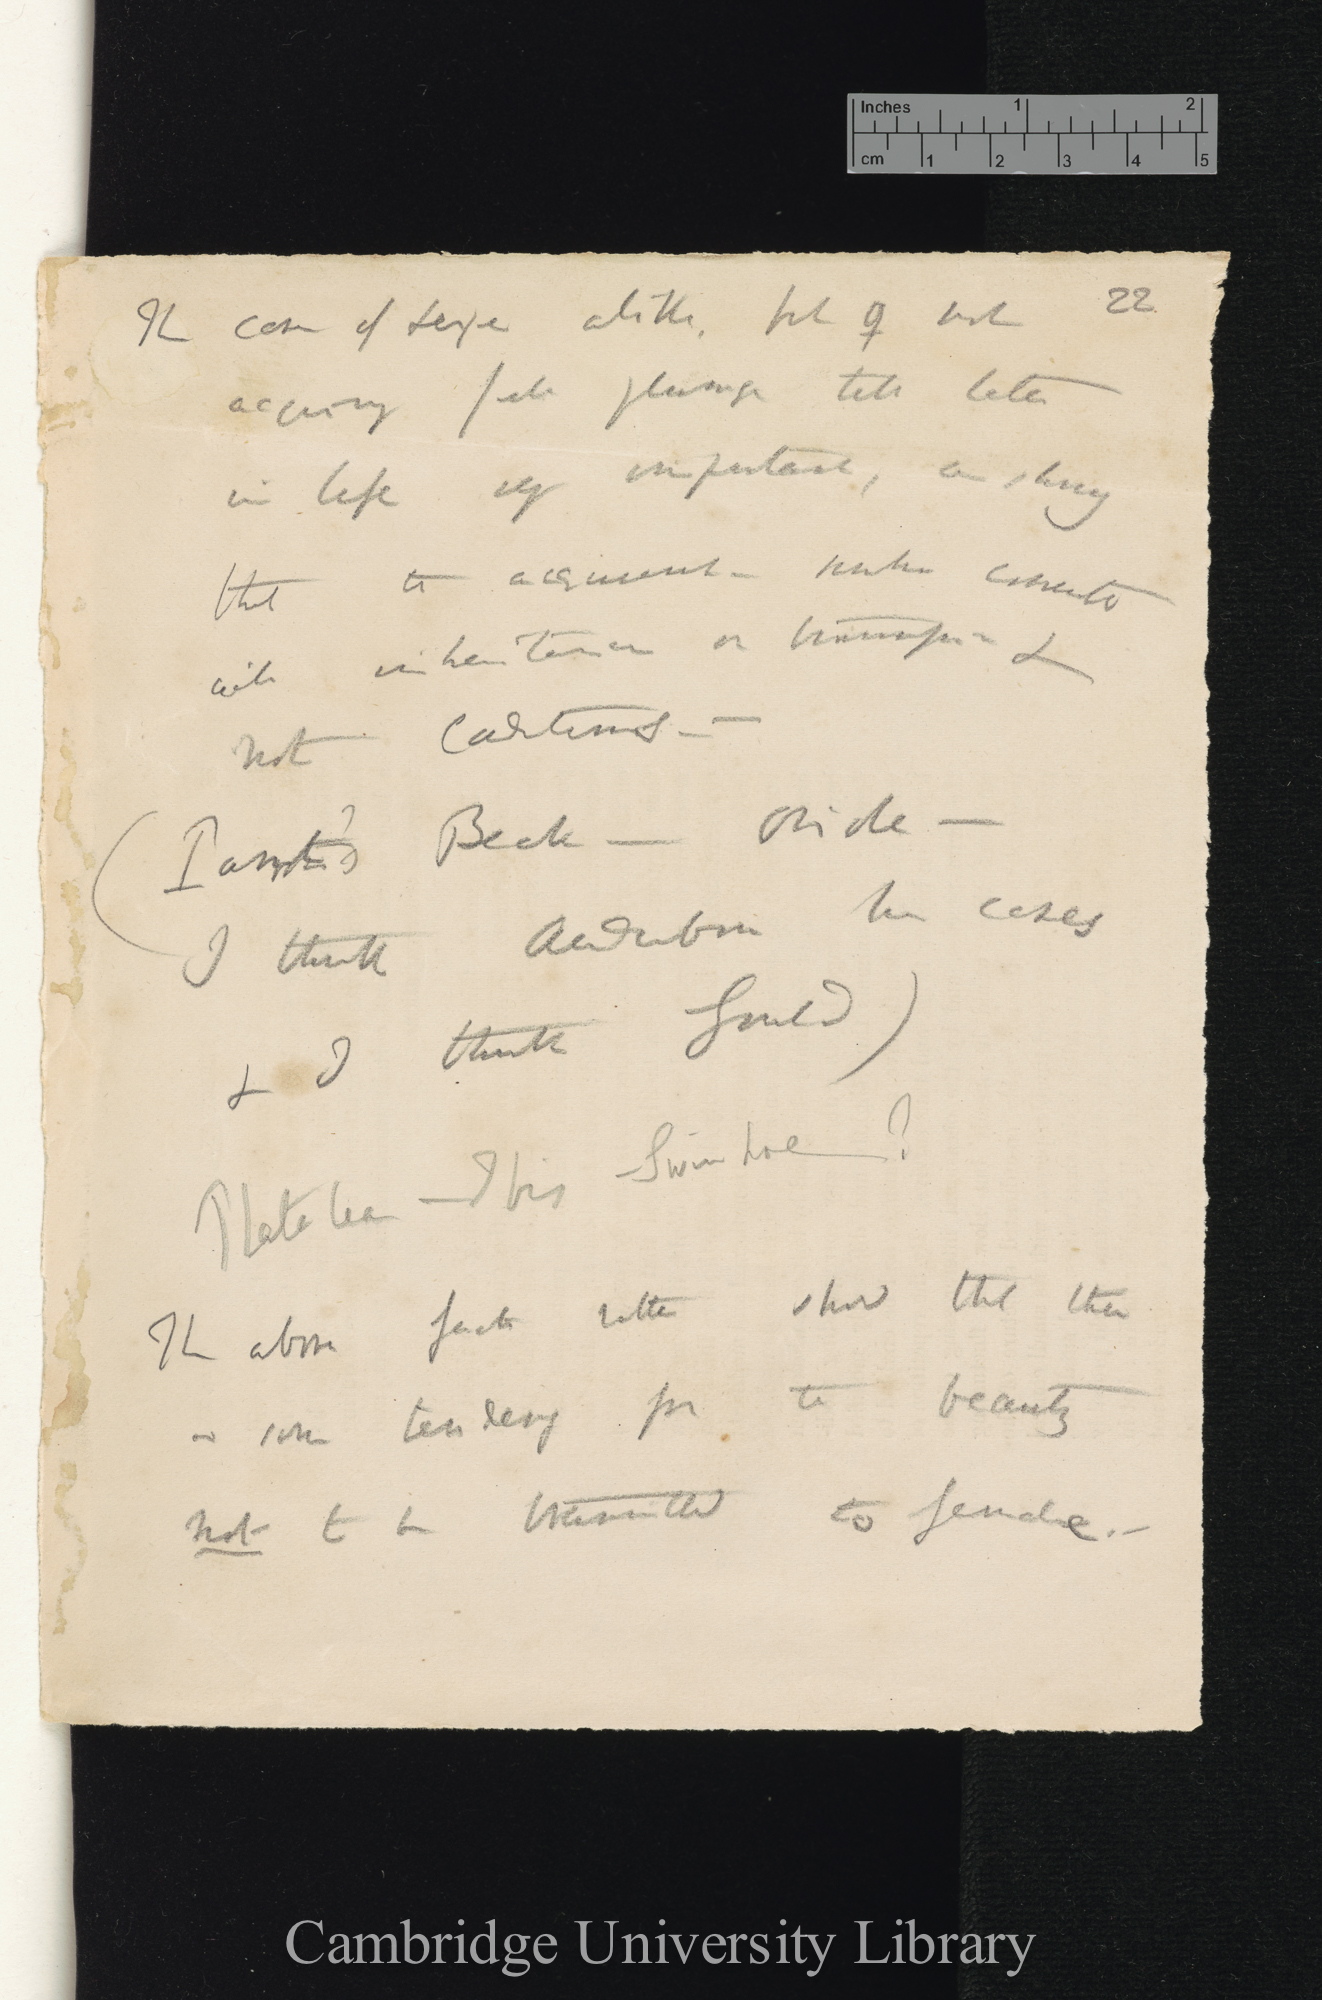 Inches 1 2
cm 1 2 3 4 5
22
The case of sexes alike, but ♀ not
acquiring full plumage till later
in life very important, as showing
that the acquirement
with inheritance or &
not
(Beak — Oriole —
I think Audubon has cases
& I think Gould)
Platalea — Ibis Swinhoe — ?
The above facts rather show that there
is some tendency for the beauty
not to be transmitted to female. —
Cambridge University Library